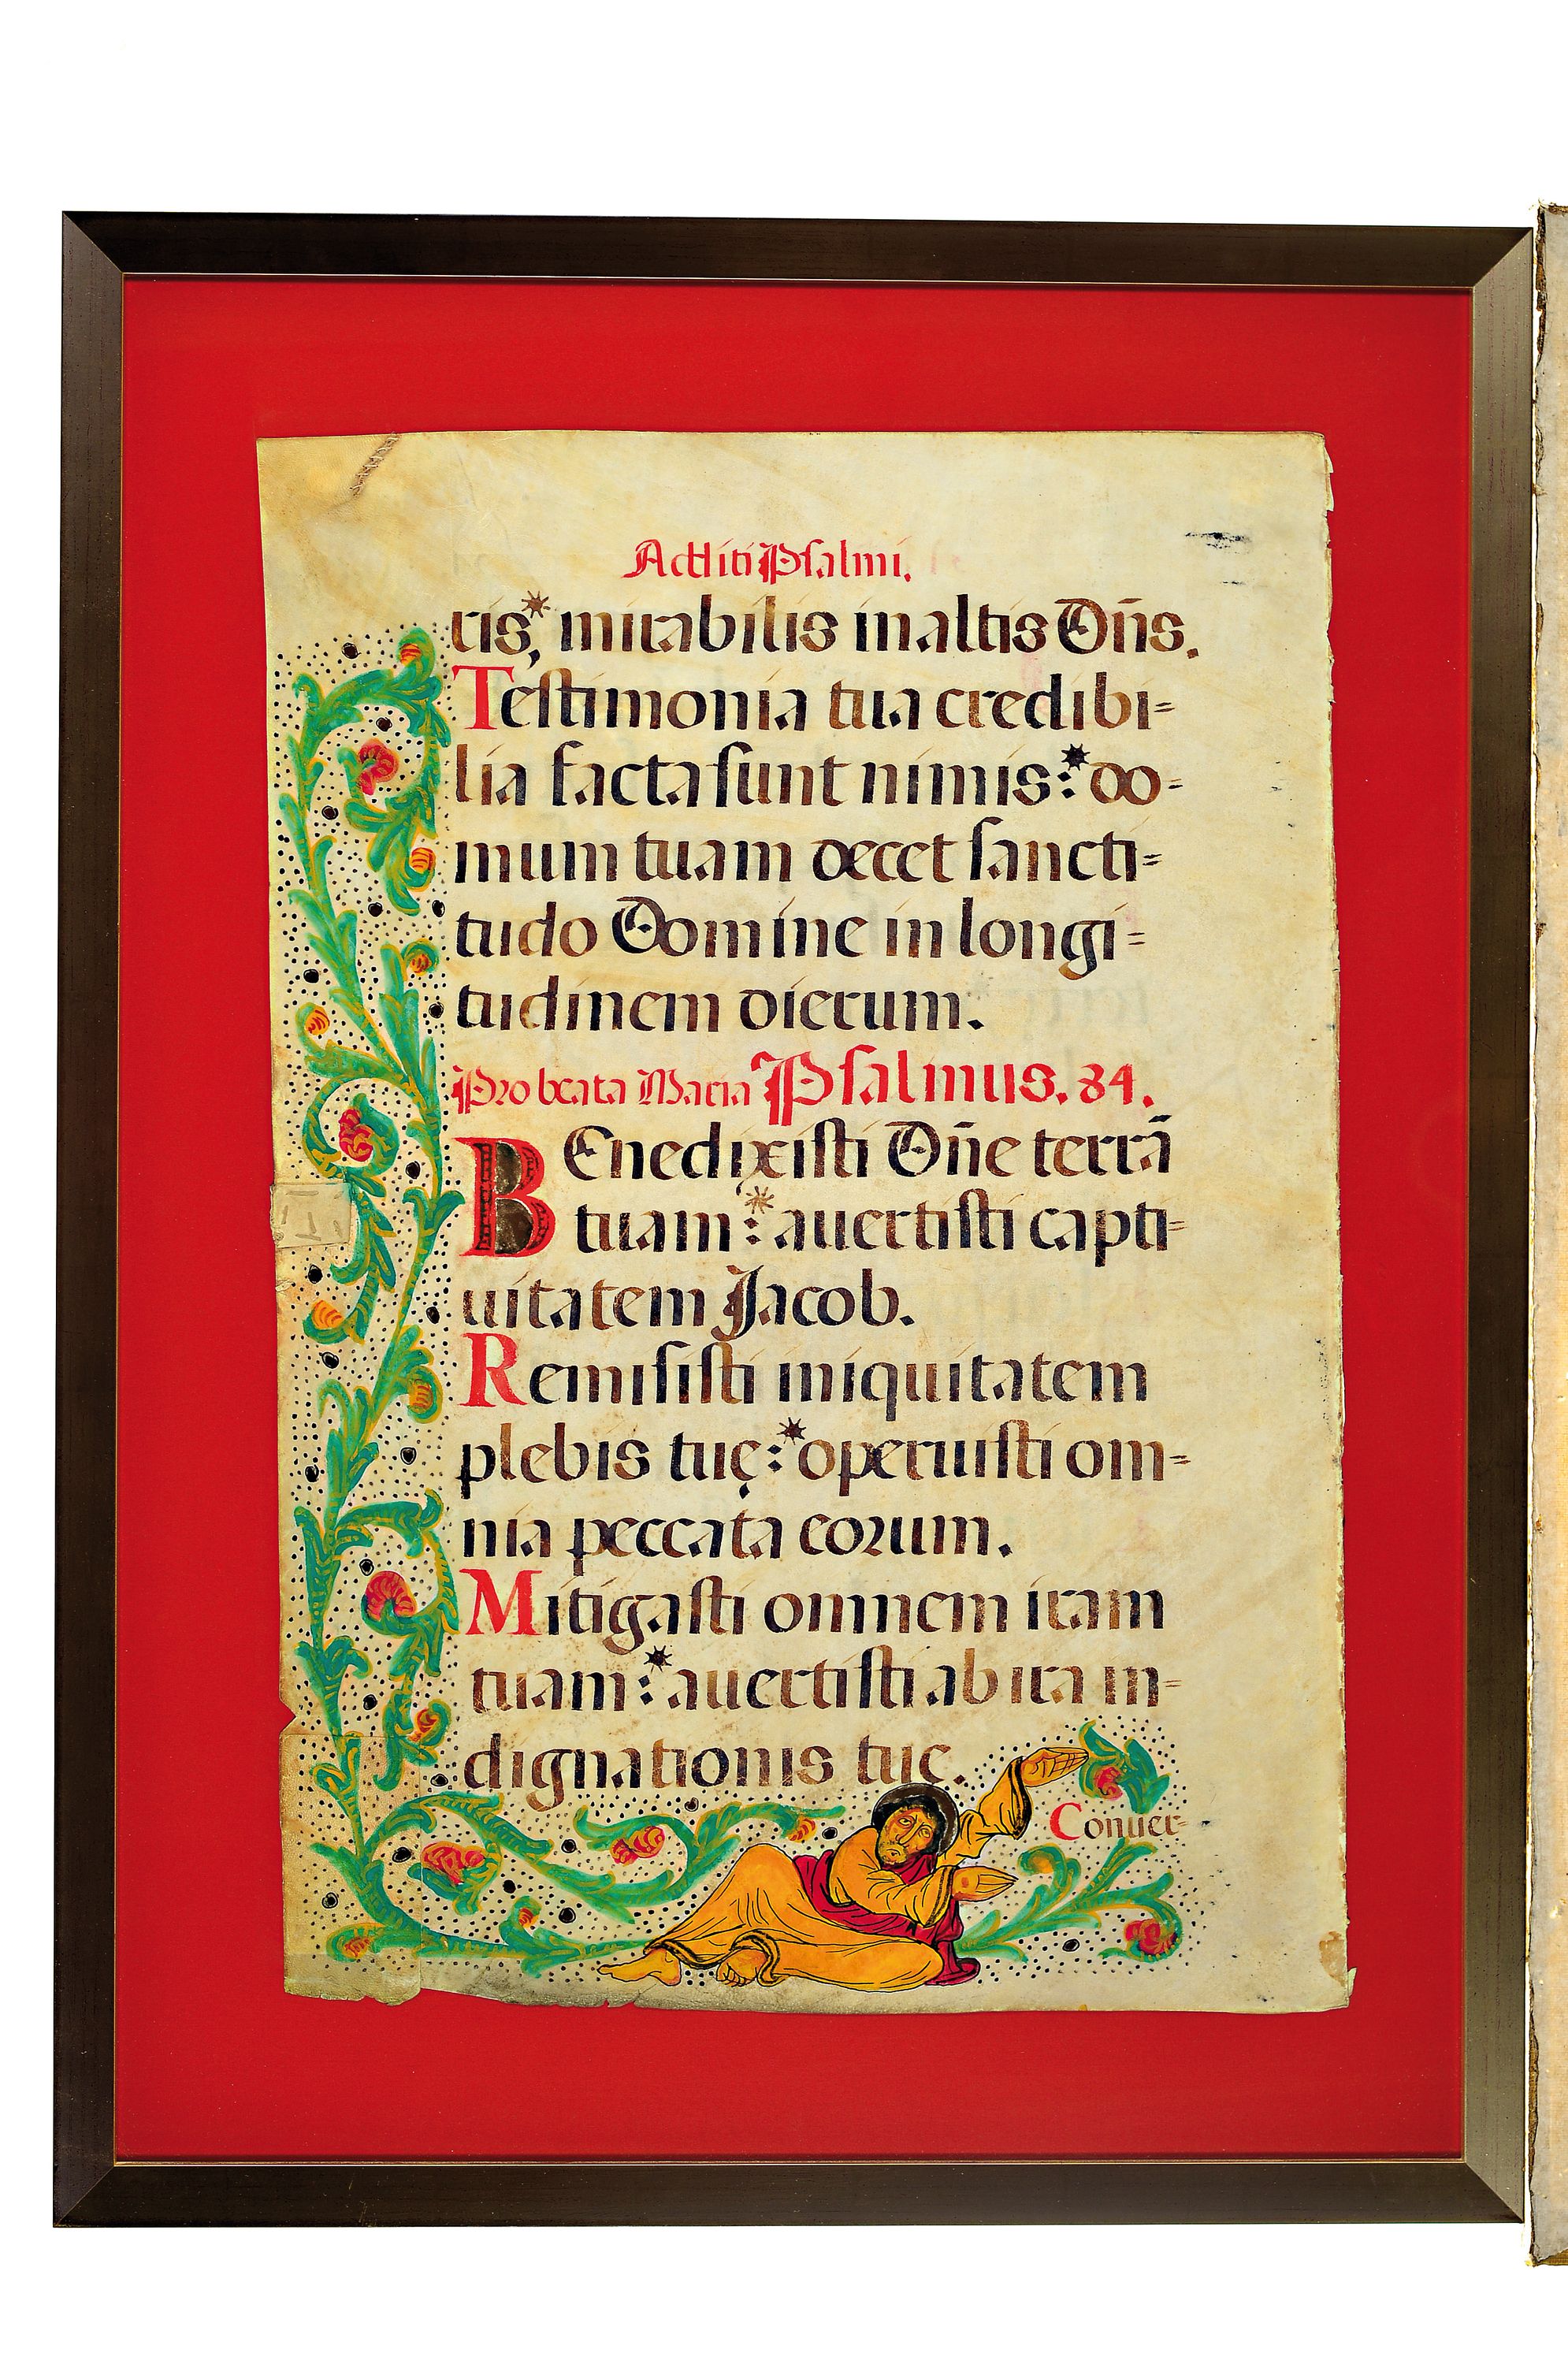 Additi Psalmi.
ris,* mirabilis in altis Dñs.
Testimonia tua credibi=
lia facta sunt nimis:* do=
mum tuam decet sancti=
tudo Domine in longi=
tudinem dierum.
Pro beata Maria Psalmus. 84.
BEnedixisti Dñe terrā
tuam:* auertisti capti=
uitatem Jacob.
Remisisti iniquitatem
plebis tuę:* operuisti om=
nia peccata eorum.
Mitigasti omnem iram
tuam:* auertisti ab ira in=
dignationis tuę.
Conuer=